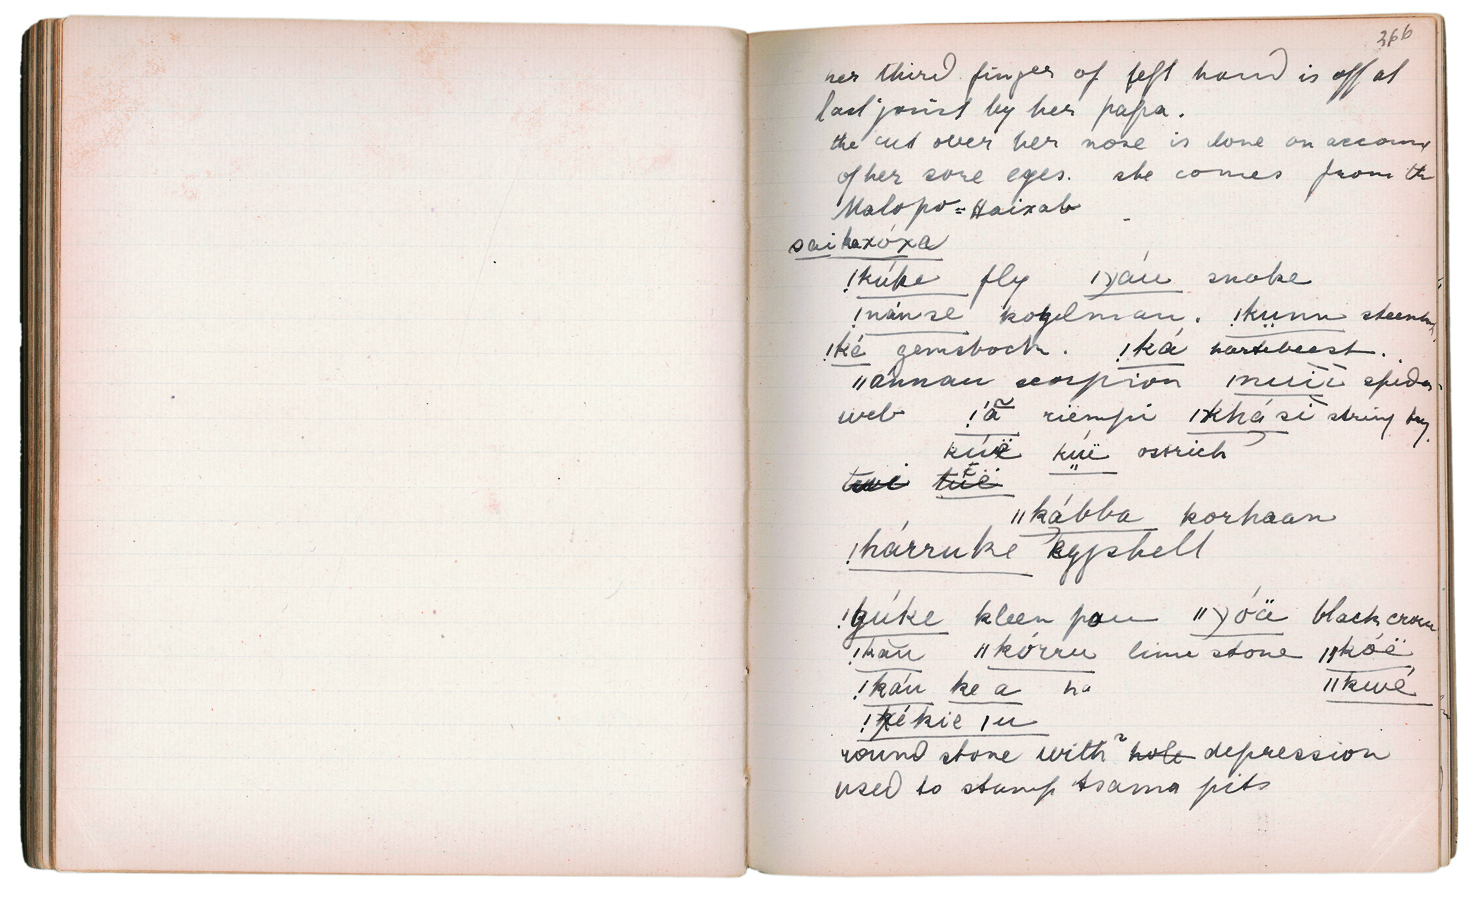 366
her third finger of left hand is off at
last joint by her papa.
the cut over her nose is done on account
of her sore eyes. she comes from the
Malopo = Haixab
saihaxóxa
!kúke fly ǀχáu snake
!nánse kogelman. !kunn steenbok
!ké gemsbock. !ká hartebeest.
ǁánnau scorpion ǀnuiï spider
web !ã riempi ǀkhási string bag
kúë kúï ostrich
ǁkábba korhaan
!hárruke eggshell
!gúke kleen pau ǁχóä black crow
!kãu ǁkórru lime stone ǁkóë
!káu ke a ǁkwé
!kékie ǀu
round stone with hole depression
used to stamp tsama pits